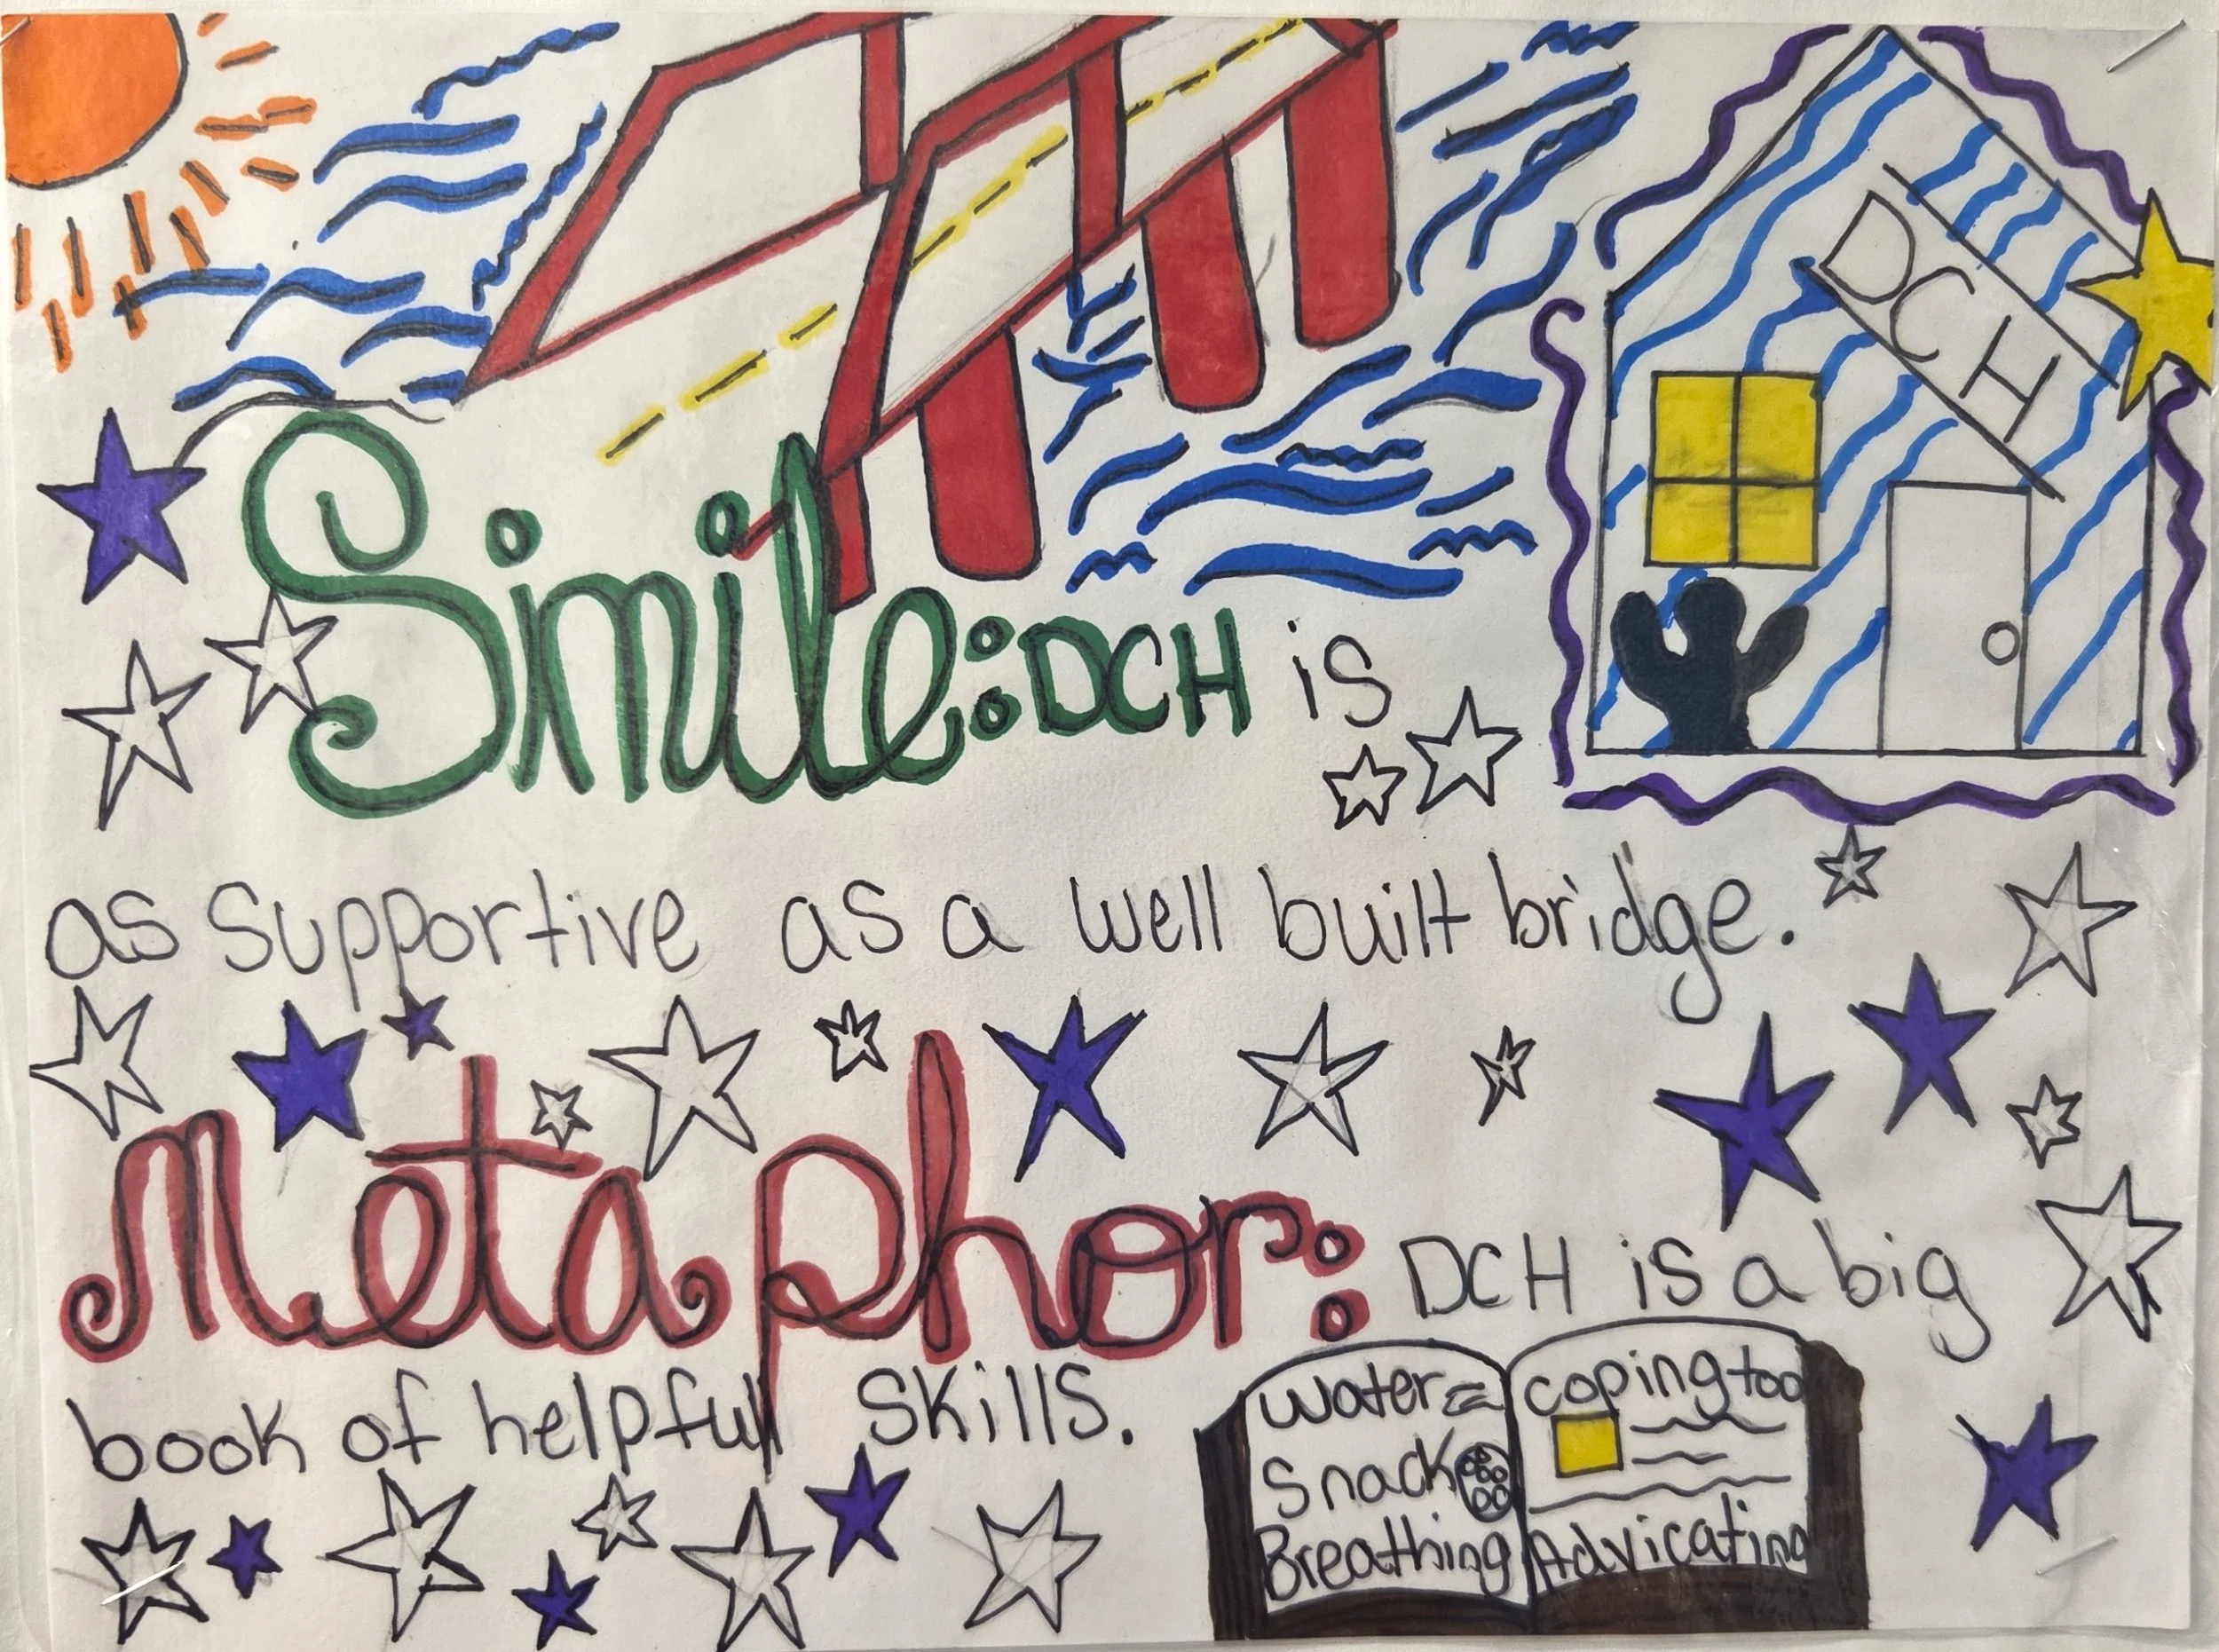 DCH
Simile: DCH is
as supportive as a well built bridge.
Metaphor: DCH is a big
book of helpful skills.
water
snack
Breathing
coping too
Advicating